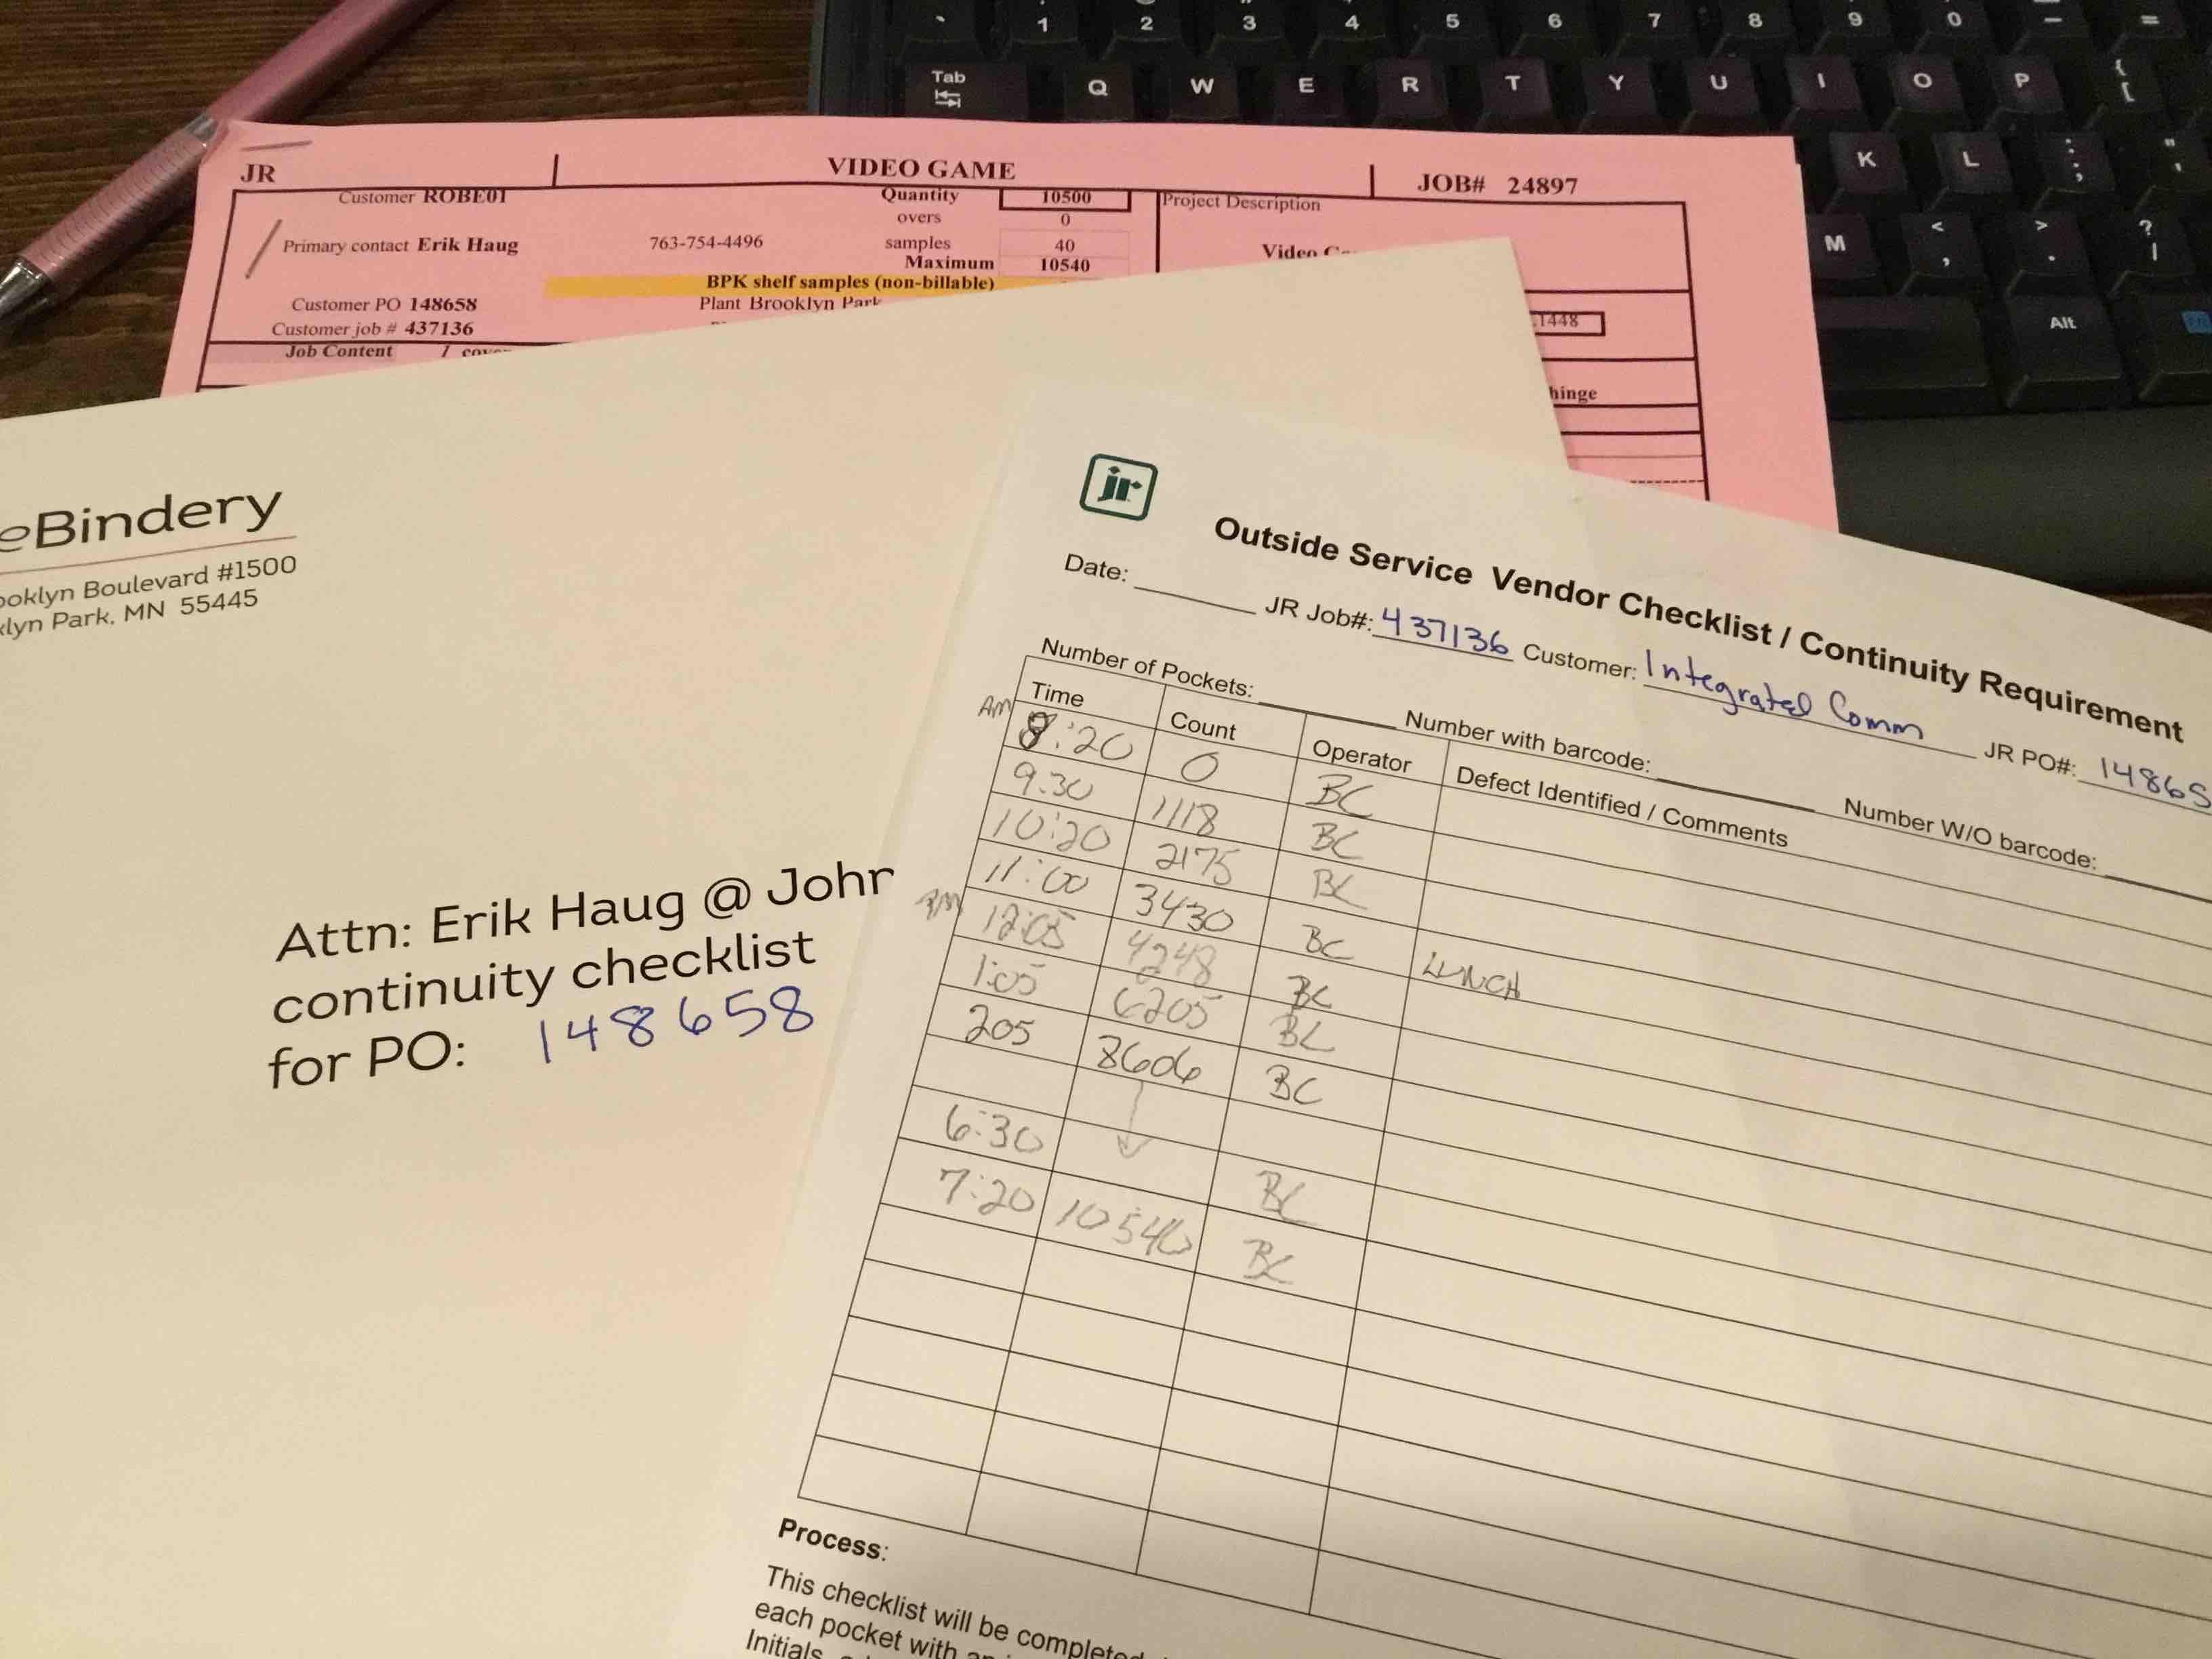 ` 1 2 3 4 5 6 7 8 9 0 - =
Tab Q W E R T Y U I O P { [
K L : ; " '
M < , > . ? /
Alt
JR VIDEO GAME JOB# 24897
Customer ROBE01 Quantity 10500 Project Description
overs 0
Primary contact Erik Haug 763-754-4496 samples 40 Video
Maximum 10540
BPK shelf samples (non-billable)
Customer PO 148658 Plant Brooklyn Park
Customer job # 437136 1448
Job Content 1
hinge
eBindery
ooklyn Boulevard #1500
klyn Park, MN 55445
Attn: Erik Haug @ John
continuity checklist
for PO: 148658
jr
Outside Service Vendor Checklist / Continuity Requirement
Date: JR Job#: 437136 Customer: Integrated Comm JR PO#: 14865
Number of Pockets: Number with barcode: Number W/O barcode:
Time Count Operator Defect Identified / Comments
AM 8:20 0 BC
9:30 1118 BC
10:20 2175 BC
11:00 3430 BC LUNCH
PM 12:05 4248 BC
1:05 6205 BC
205 8606 BC
6:30 BC
7:20 10540 BC
Process:
This checklist will be completed
each pocket with an
Initials